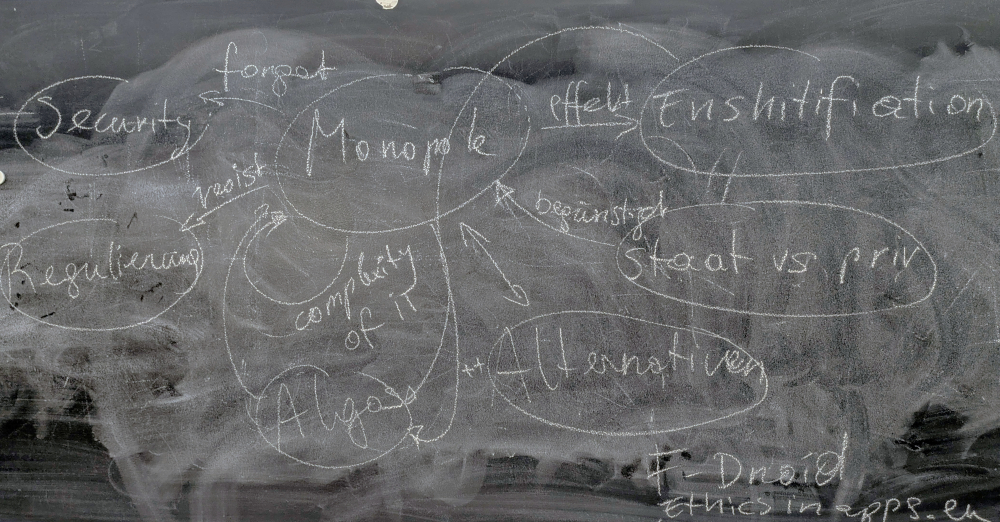 forgot
Security
Monopole
effekt
Enshitification
resist
begünstigt
Regulierung
complexity
of it
Staat vs priv
++ Alternativen
Algos
F-Droid
Ethics in apps.eu